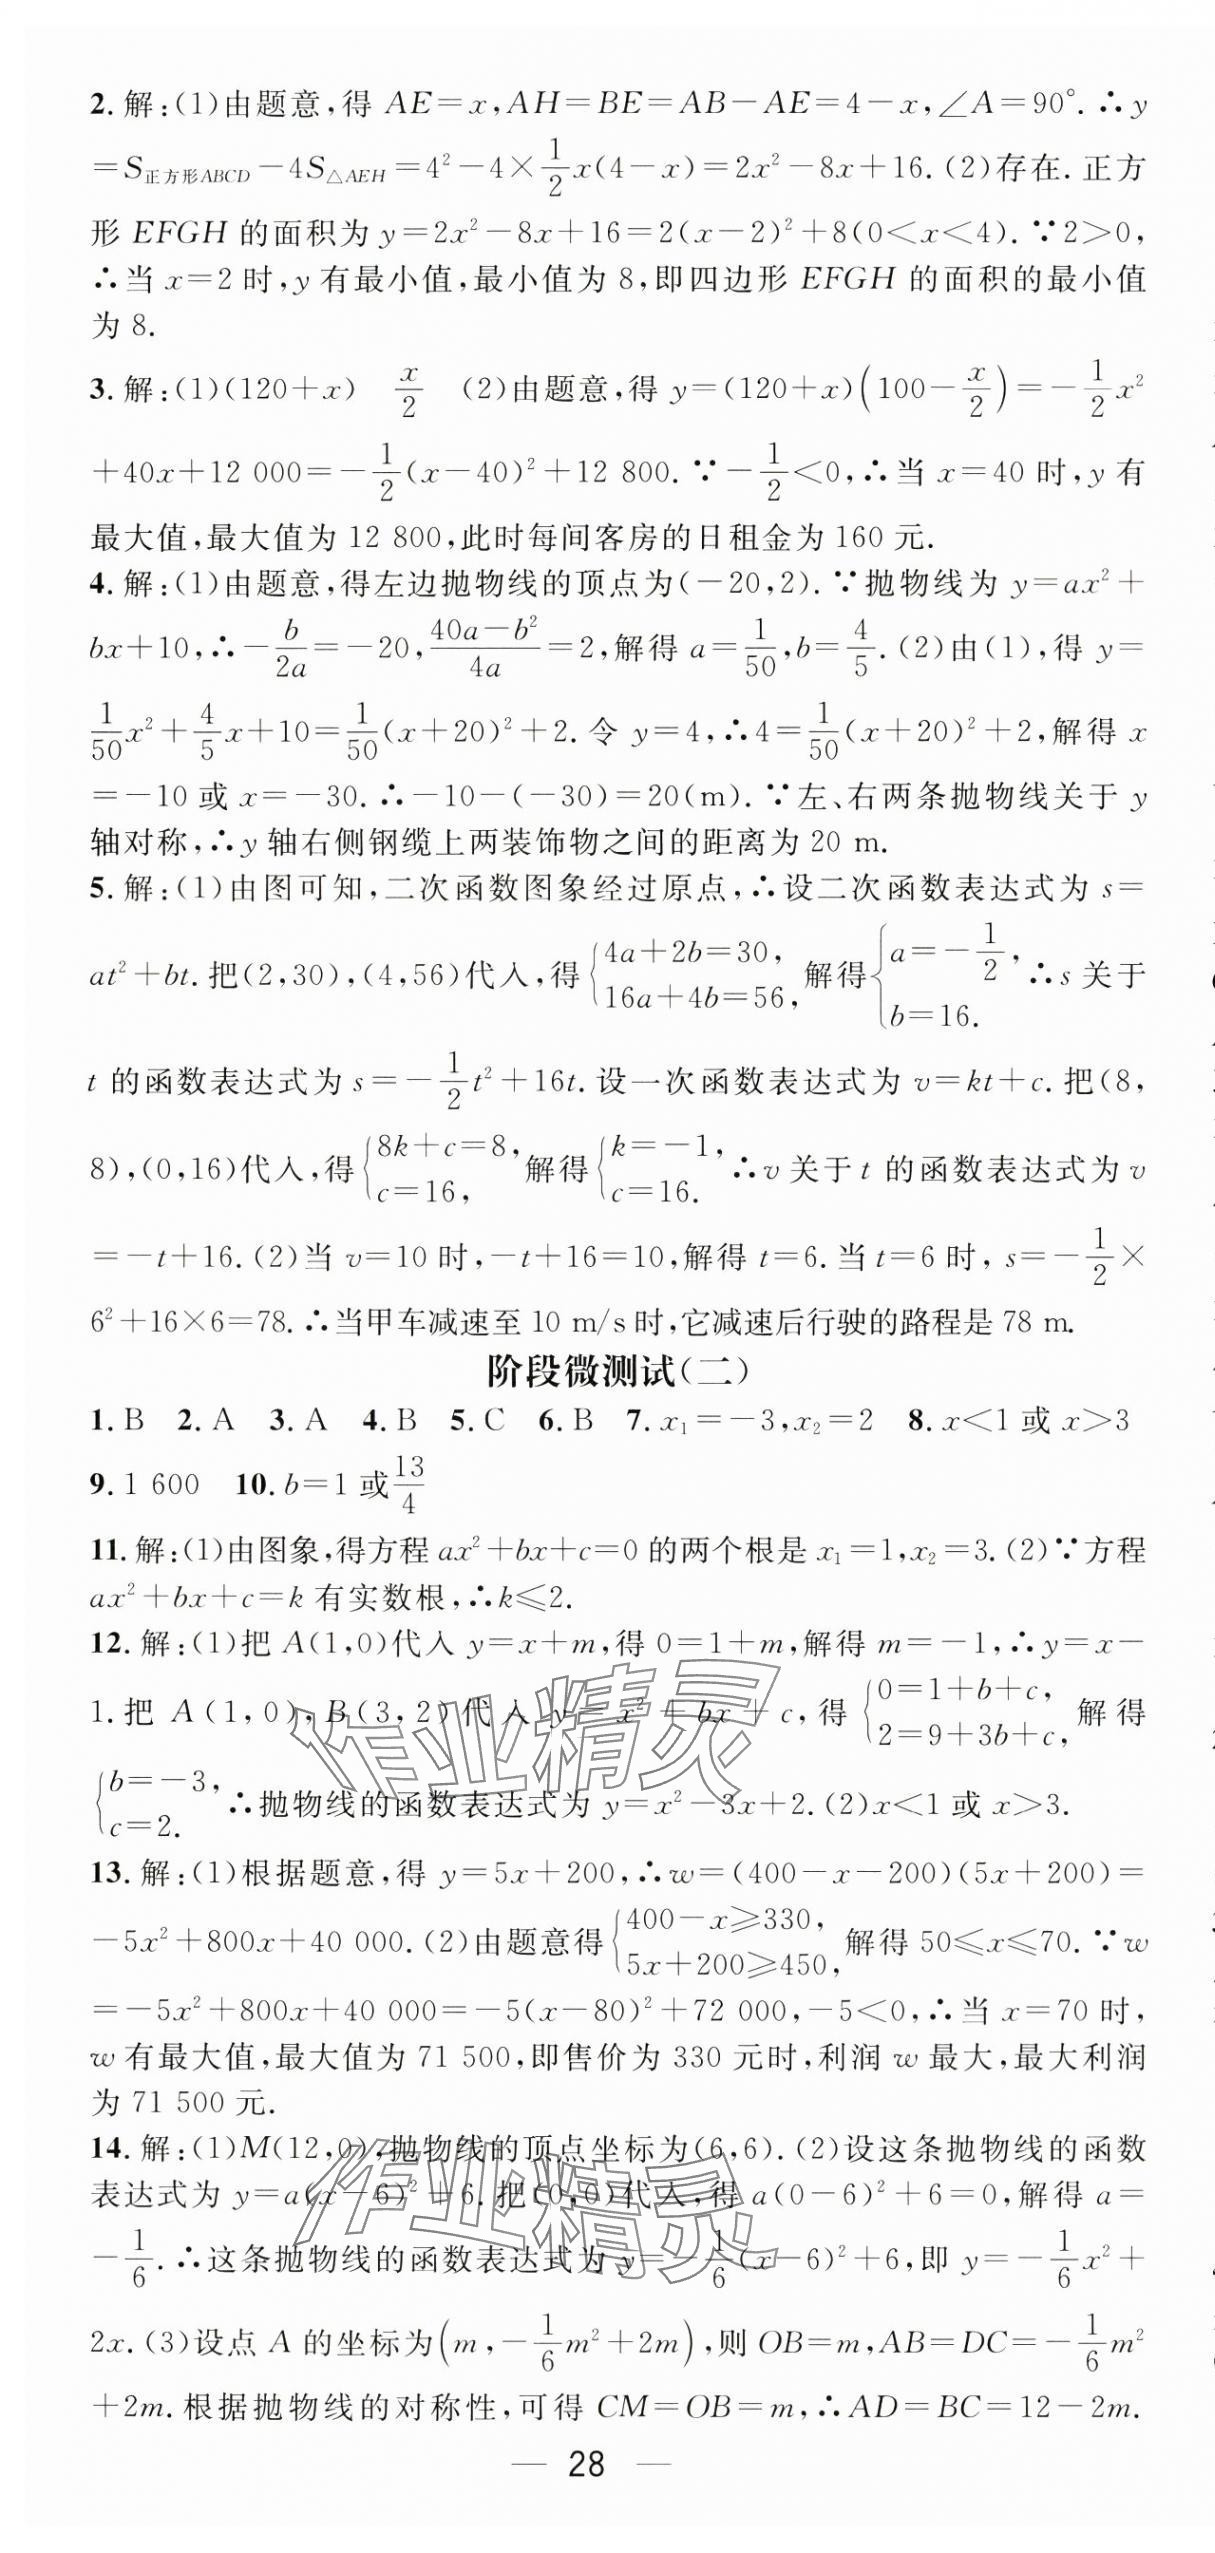 2.解:(1)由题意,得 AE=x,AH=BE=AB-AE=4-x,∠A=90°.∴y
=S正方形ABCD-4S△AEH=4²-4×1/2x(4-x)=2x²-8x+16.(2)存在.正方
形 EFGH 的面积为 y=2x²-8x+16=2(x-2)²+8(0<x<4).∵2>0,
∴当 x=2 时,y 有最小值,最小值为 8,即四边形 EFGH 的面积的最小值
为 8.
3.解:(1)(120+x) x/2 (2)由题意,得 y=(120+x)(100-x/2)=-1/2x²
+40x+12 000=-1/2(x-40)²+12 800.∵-1/2<0,∴当 x=40 时,y 有
最大值,最大值为 12 800,此时每间客房的日租金为 160 元.
4.解:(1)由题意,得左边抛物线的顶点为(-20,2).∵抛物线为 y=ax²+
bx+10,∴-b/2a=-20,(40a-b²)/4a=2,解得 a=1/50,b=4/5.(2)由(1),得 y=
1/50x²+4/5x+10=1/50(x+20)²+2.令 y=4,∴4=1/50(x+20)²+2,解得 x
=-10 或 x=-30.∴-10-(-30)=20(m).∵左、右两条抛物线关于 y
轴对称,∴y 轴右侧钢缆上两装饰物之间的距离为 20 m.
5.解:(1)由图可知,二次函数图象经过原点,∴设二次函数表达式为 s=
at²+bt.把(2,30),(4,56)代入,得{4a+2b=30, 16a+4b=56,解得{a=-1/2, b=16.∴s 关于
t 的函数表达式为 s=-1/2t²+16t.设一次函数表达式为 v=kt+c.把(8,
8),(0,16)代入,得{8k+c=8, c=16,解得{k=-1, c=16.∴v 关于 t 的函数表达式为 v
=-t+16.(2)当 v=10 时,-t+16=10,解得 t=6.当 t=6 时,s=-1/2×
6²+16×6=78.∴当甲车减速至 10 m/s时,它减速后行驶的路程是 78 m.
阶段微测试(二)
1.B 2.A 3.A 4.B 5.C 6.B 7.x₁=-3,x₂=2 8.x<1 或 x>3
9.1 600 10.b=1 或13/4
11.解:(1)由图象,得方程 ax²+bx+c=0 的两个根是 x₁=1,x₂=3.(2)∵方程
ax²+bx+c=k 有实数根,∴k≤2.
12.解:(1)把 A(1,0)代入 y=x+m,得 0=1+m,解得 m=-1,∴y=x-
1.把 A(1,0),B(3,2)代入 y=x²+bx+c,得{0=1+b+c, 2=9+3b+c,解得
{b=-3, c=2.∴抛物线的函数表达式为 y=x²-3x+2.(2)x<1 或 x>3.
13.解:(1)根据题意,得 y=5x+200,∴w=(400-x-200)(5x+200)=
-5x²+800x+40 000.(2)由题意得{400-x≥330, 5x+200≥450,解得 50≤x≤70.∵w
=-5x²+800x+40 000=-5(x-80)²+72 000,-5<0,∴当 x=70 时,
w 有最大值,最大值为 71 500,即售价为 330 元时,利润 w 最大,最大利润
为 71 500 元.
14.解:(1)M(12,0),抛物线的顶点坐标为(6,6).(2)设这条抛物线的函数
表达式为 y=a(x-6)²+6.把(0,0)代入,得 a(0-6)²+6=0,解得 a=
-1/6.∴这条抛物线的函数表达式为 y=-1/6(x-6)²+6,即 y=-1/6x²+
2x.(3)设点 A 的坐标为(m,-1/6m²+2m),则 OB=m,AB=DC=-1/6m²
+2m.根据抛物线的对称性,可得 CM=OB=m,∴AD=BC=12-2m.
— 28 —
作业精灵
作业精灵